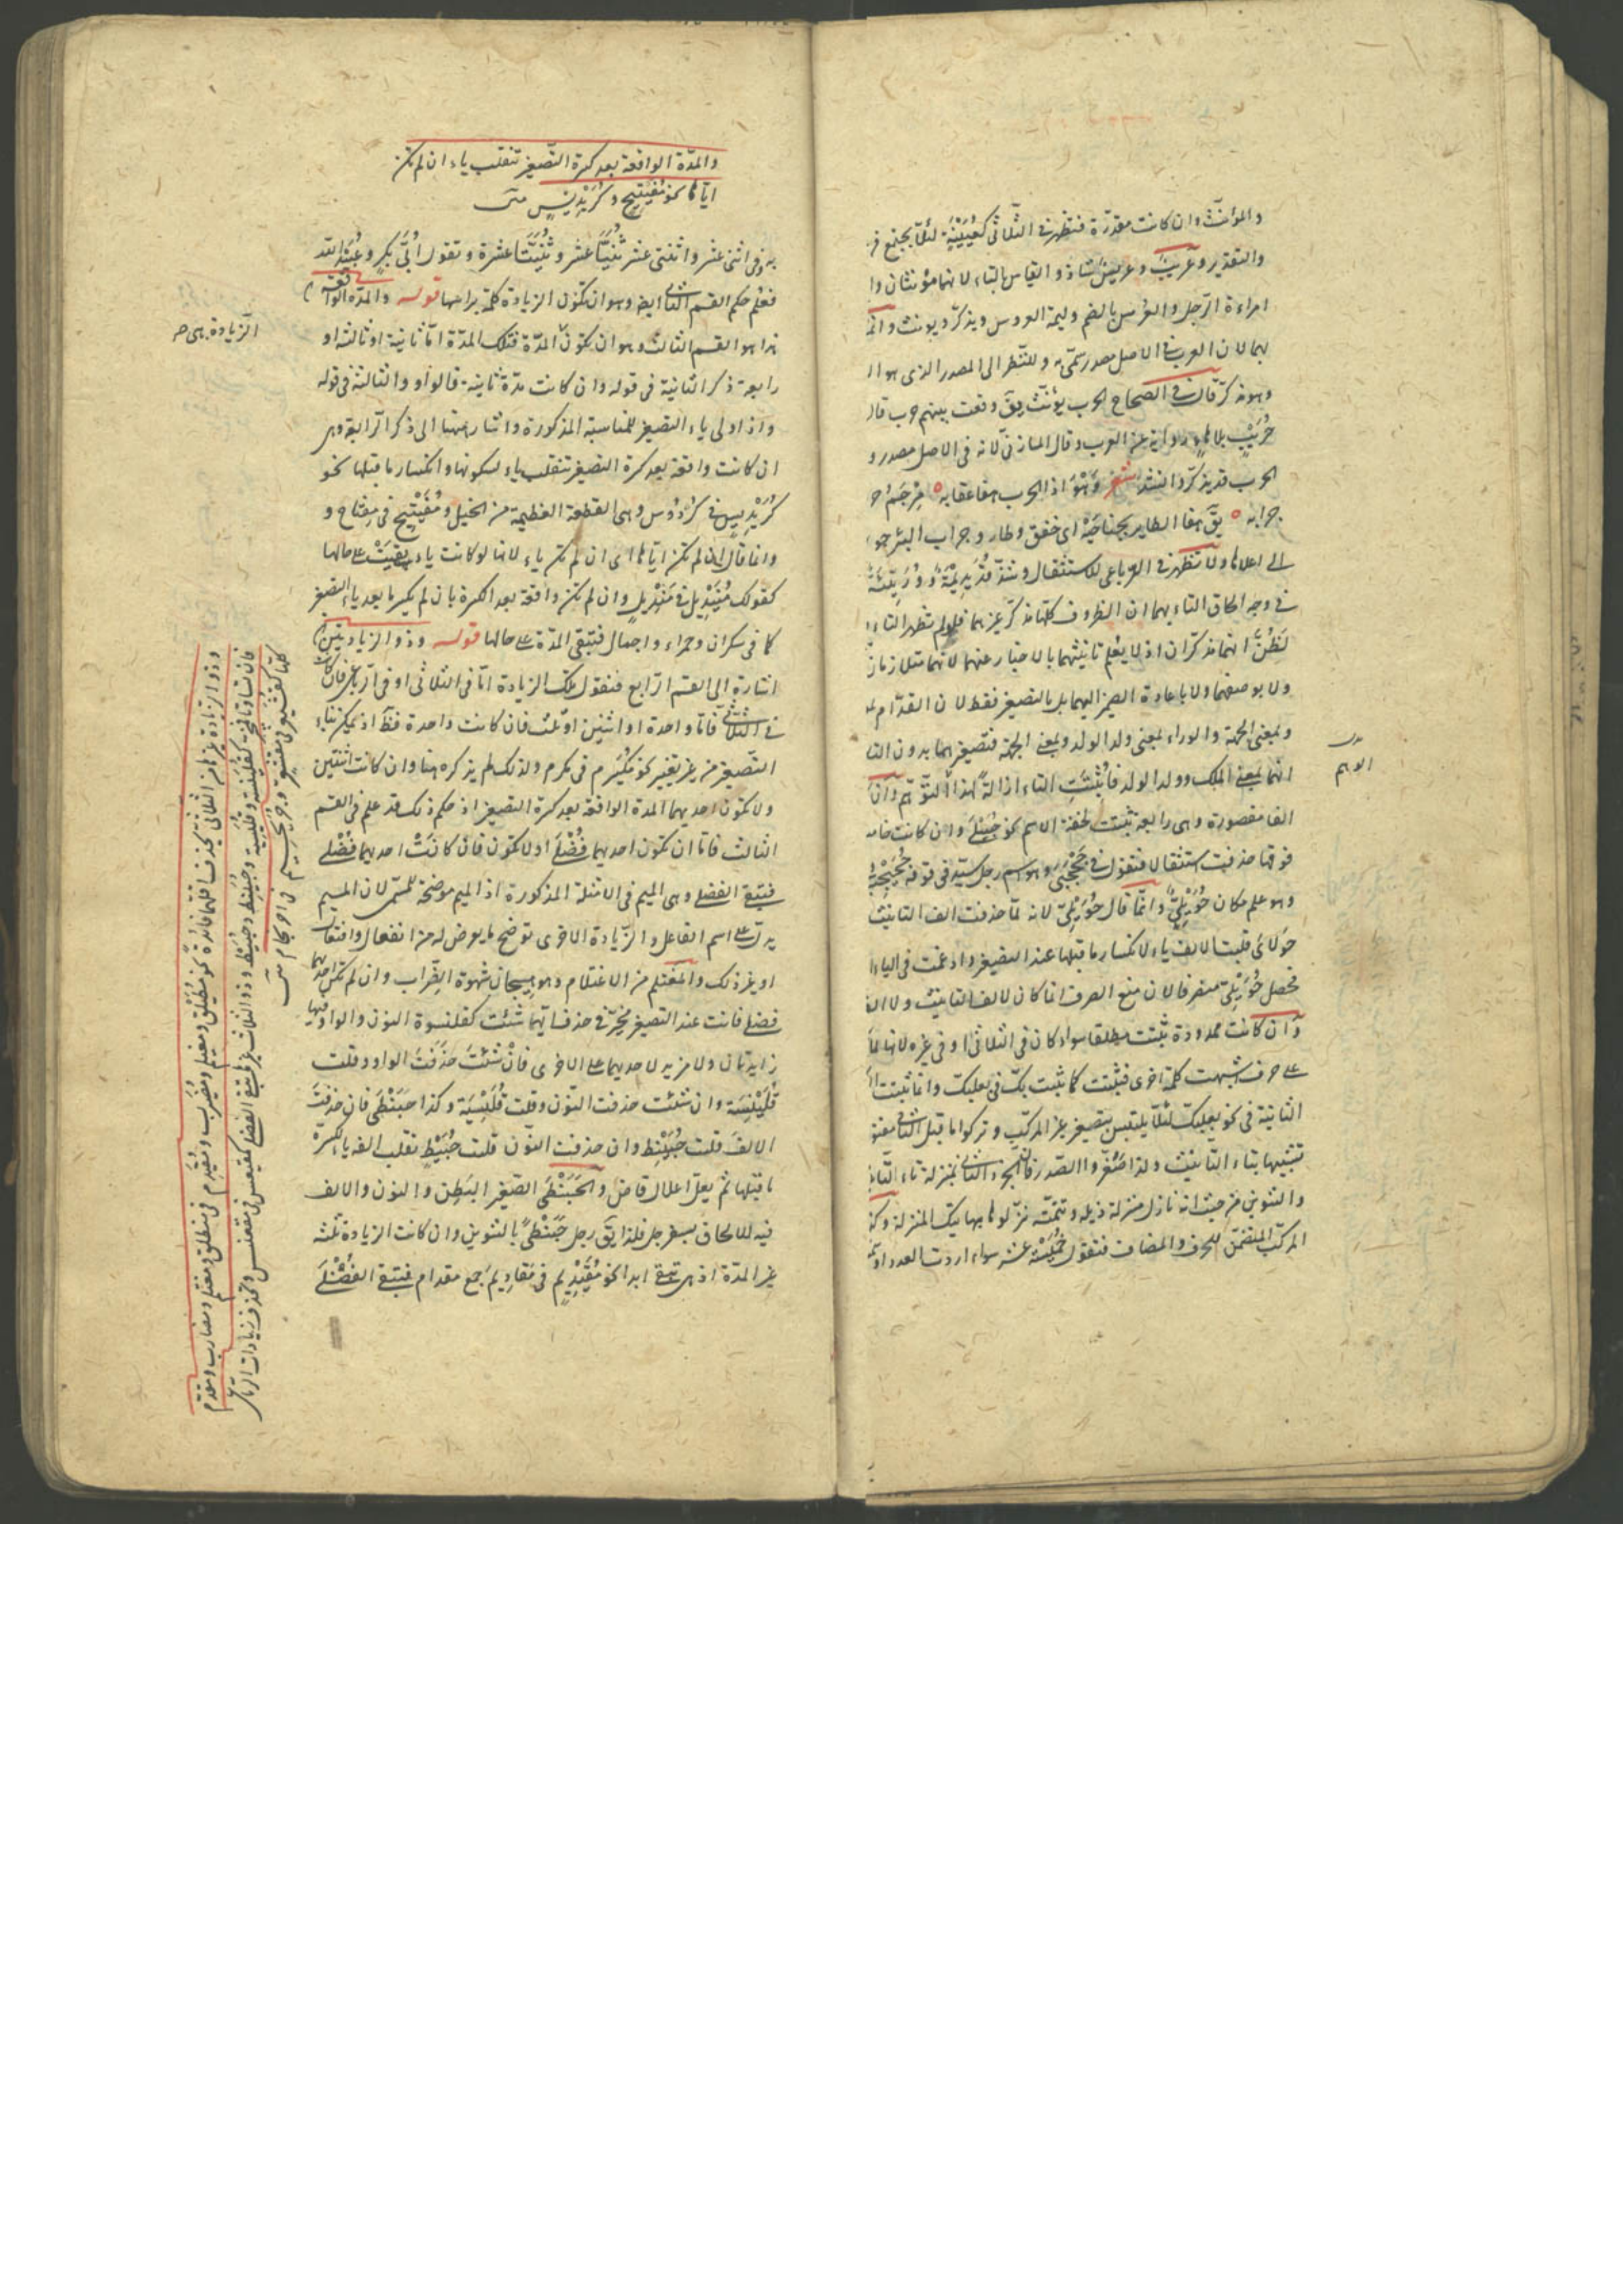 والمؤنث وان كانت مقدرة فتظهر فى الثلاثى كعيينة لئلا يجتمع فر
والتقدير وعريب وعريس شاذ والقياس بالتاء لانهما مؤنثان وا
امراءة الرجل والعرس بالضم وليمة العروس ويذكر ويونث وانما
بها لان العرب فى الاصل مصدر سمى به وللنظر الى المصدر الذى هو ا
وهو مذكر قال فى الصحاح الحرب يؤنث يق وقعت بينهم حرب قال
حريب بلا هاء رواية عن العرب وقال المازنى لانه فى الاصل مصدر و
الحرب قد يذكر وانشد شعر وهو اذا الحرب هفا عقابه مرجم ح
حرابه يق هفا الطاير بجناحيه اى خفق وطار وجراب البئر جو
الى اعلاها ولا تظهر فى الرباعى للاستثقال وشذ قديديمة ووريئة
فى وجه الحاق التاء بهما ان الظروف كلها مذكر غيرهما فلو لم تظهر التاء
لظن انهما مذكران اذ لا يعلم تانيثهما بالاخبار عنهما لانهما متلازمان
ولا بوصفهما ولا باعادة الضمير اليهما بل بالتصغير فقط لان القدام
وبمعنى الجهة والوراء بمعنى ولد الولد وبمعنى الجهة فتصغيرهما بدون التا
انهما بمعنى الملك وولد الولد فاثبتت التاء ازالة لهذا التوهم وان
الفا مقصورة وهى رابعة تثبت لخفة الاسم نحو حبيلى وان كانت خامسة
فوقها حذفت استثقالا فتقول فى جحجبى وهو اسم رجل سيد فى قومه جحيجب
وهو علم مكان حويلى وانما قال حويلى لانه لما حذفت الف التانيث
حولائى قلبت الالف ياء لانكسار ما قبلها عند التصغير وادغمت فى الياء
فحصل حويلى منصرفا لان منع الصرف انما كان لالف التانيث ولا الف
وان كانت ممدودة تثبت مطلقا سواء كان فى الثلاثى او فى غيره لانها لما
على حرف اشبهت كلمة اخرى فتثبت كما تثبت بك فى بعلبك وانما تثبت
الثانية فى نحو بعلبك لئلا يلتبس بتصغير غير المركب وتركوا ما قبل الثانى مفتو
تشبيها بتاء التانيث ولذا صغروا الصدر فان الجزء الثانى بمنزلة تاء التا
والتنوين من حيث انه نازل منزلة ذيله وتتمته نزلوها بهاتيك المنزلة وكذ
المركب المتضمن للحرف والمضاف فتقول خميسة عشر سواء اردت العدد او
الوهم
والمدة الواقعة بعد كسرة التصغير تنقلب ياء ان لم تكن
اياها نحو مفيتيح وكريديس متن
به وفى اثنى عشر واثنتى عشر ثنيا عشر وثنيتا عشرة وتقول ابى بكر وعبيد الله
فعلم حكم القسم الثانى ايضا وهو ان تكون الزيادة كلمة براسها قوله والمدة الواقعة
هذا هو القسم الثالث وهو ان تكون المدة فتلك المدة اما ثانية او ثالثة او
رابعة ذكر الثانية فى قوله وان كانت مدة ثانية قالواو والثالثة فى قوله
واذا ولى ياء التصغير للمناسبة المذكورة واشار ههنا الى ذكر الرابعة وهى
ان كانت واقعة بعد كسرة التصغير تنقلب ياء لسكونها وانكسار ما قبلها نحو
كريديس فى كردوس وهى القطعة العظيمة من الخيل ومفيتيح فى مفتاح و
وانما قال ان لم تكن اياها اى ان لم تكن ياء لانها لو كانت ياء بقيت على حالها
كقولك منيديل فى منديل وان لم تكن واقعة بعد الكسرة بان لم يكسر ما بعد ياء التصغير
كما فى سكران وحمراء واجمال فتبقى المدة على حالها قوله وذو الزيادتين
اشارة الى القسم الرابع فنقول تلك الزيادة اما فى الثلاثى او فى الرباعى فان كانت
فى الثلاثى فاما واحدة او اثنين او ثلث فان كانت واحدة فظ اذ يمكن بناء
التصغير من غير تغيير نحو مكيرم فى مكرم ولذلك لم يذكره هنا وان كانت اثنتين
ولا تكون احديهما المدة الواقعة بعد كسرة التصغير اذ حكم ذلك قد علم فى القسم
الثالث فاما ان تكون احديهما فضلى او لا تكون فان كانت احديهما فضلى
فتبقى الفضلى وهى الميم فى الامثلة المذكورة اذ الميم موضحة للمسمى لان الميم
يدل على اسم الفاعل والزيادة الاخرى توضح ما يعرض له من انفعال وافتعال
او غير ذلك والمغتلم من الاغتلام وهو هيجان شهوة الضراب وان لم تكن احديهما
فضلى فانت عند التصغير مخير فى حذف ايهما شئت كقلنسوة النون والواو فيها
زايدتان ولا مزية لاحديهما على الاخرى فان شئت حذفت الواو وقلت
قلينسة وان شئت حذفت النون وقلت قليسية وكذا حبنطى فان حذفت
الالف قلت حبينط وان حذفت النون قلت حبيط تقلب الفه ياء لكسرة
ما قبلها ثم يعل اعلال قاض والحبنطى الصغير البطن والنون والالف
فيه للالحاق بسفرجل فلذا يق رجل حبنطى بالتنوين وان كانت الزيادة ثلثه
غير المدة اذ هى تبقى ابدا نحو مقيديم فى مقاديم جمع مقدام فتبقى الفضلى
الزيادة هى ص
وذو الزيادة من غيرها من الثلاثى يحذف اقلهما فائدة نحو مطيلق ومغيلم ومضيرب ومقيدم فى منطلق ومغتلم ومضارب ومقدم
فان تساوتا فمخير كقلينسة وقليسية وحبينط وحبيط وذو الثلاث غيرها تبقى الفضلى كمقيعس فى مقعنسس ويحذف زيادات الرباعى
كلها كقشيعر فى مقشعر وحريجيم فى احرنجام متن